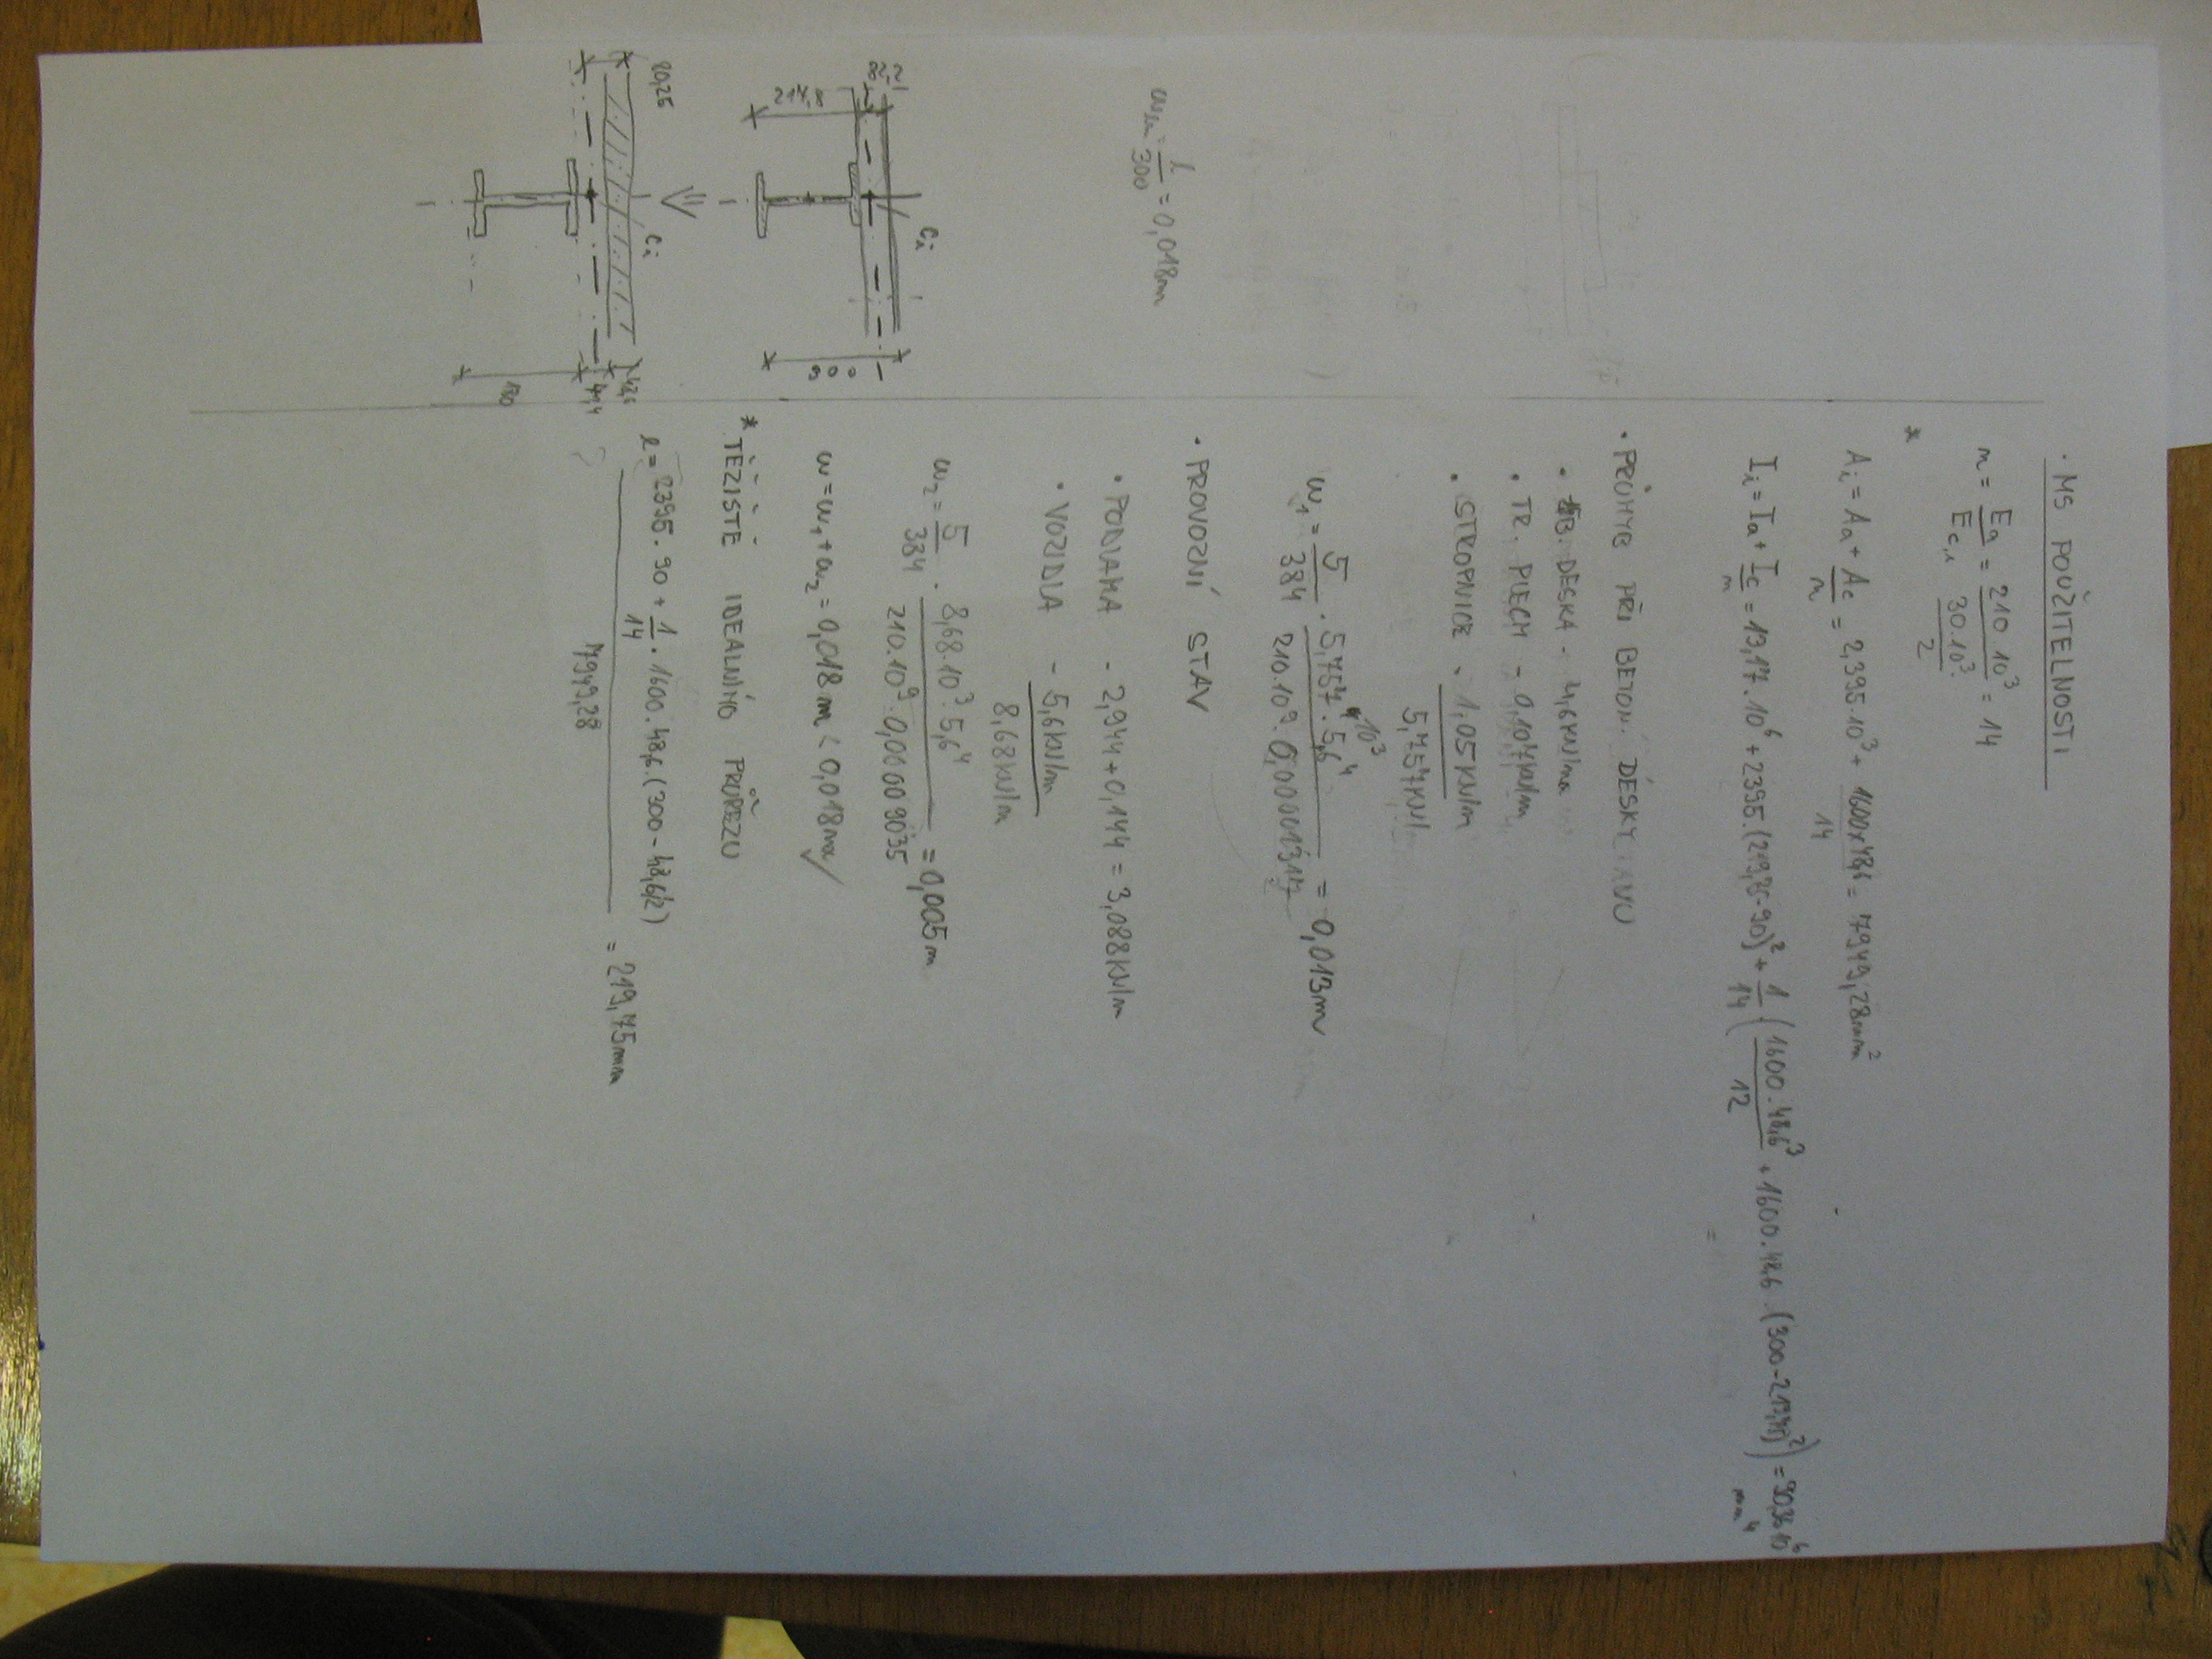 · MS POUŽITELNOSTI
n = Ea/Ec,1 = 210.10³/(30.10³/2) = 14
*
Ai = Aa + Ac/n = 2,395.10³ + 1600x48,6/14 = 7949,28mm²
Ii = Ia + Ic/n = 13,17.10⁶ + 2395.(219,75-90)² + 1/14 (1600.48,6³/12 + 1600.48,6.
· PRŮHYB PŘI BETON. DESKY
· ŽB. DESKA - 4,6KN/m
· TR. PLECH - 0,107KN/m
· STROPNICE - 1,05KN/m
5,757KN/
w1 = 5/384 · 5,757.10³.5,6⁴/210.10⁹.0,00001317 = 0,013m
wm = l/300 = 0,018m
· PROVOZNÍ STAV
· PODLAHA - 2,944+0,144 = 3,088KN/m
· VOZIDLA - 5,6KN/m
8,68KN/m
w2 = 5/384 · 8,68.10³.5,6⁴/210.10⁹.0,00009035 = 0,005m
w = w1 + w2 = 0,018m < 0,018m ✓
Ci
214,8
300
* TĚŽIŠTĚ IDEALNÍHO PRŮŘEZU
e = 2395.90 + 1/14 . 1600.48,6.(300-48,6/2)/7949,28 = 219,75mm
80,25
Ci
48,6
71,4
180